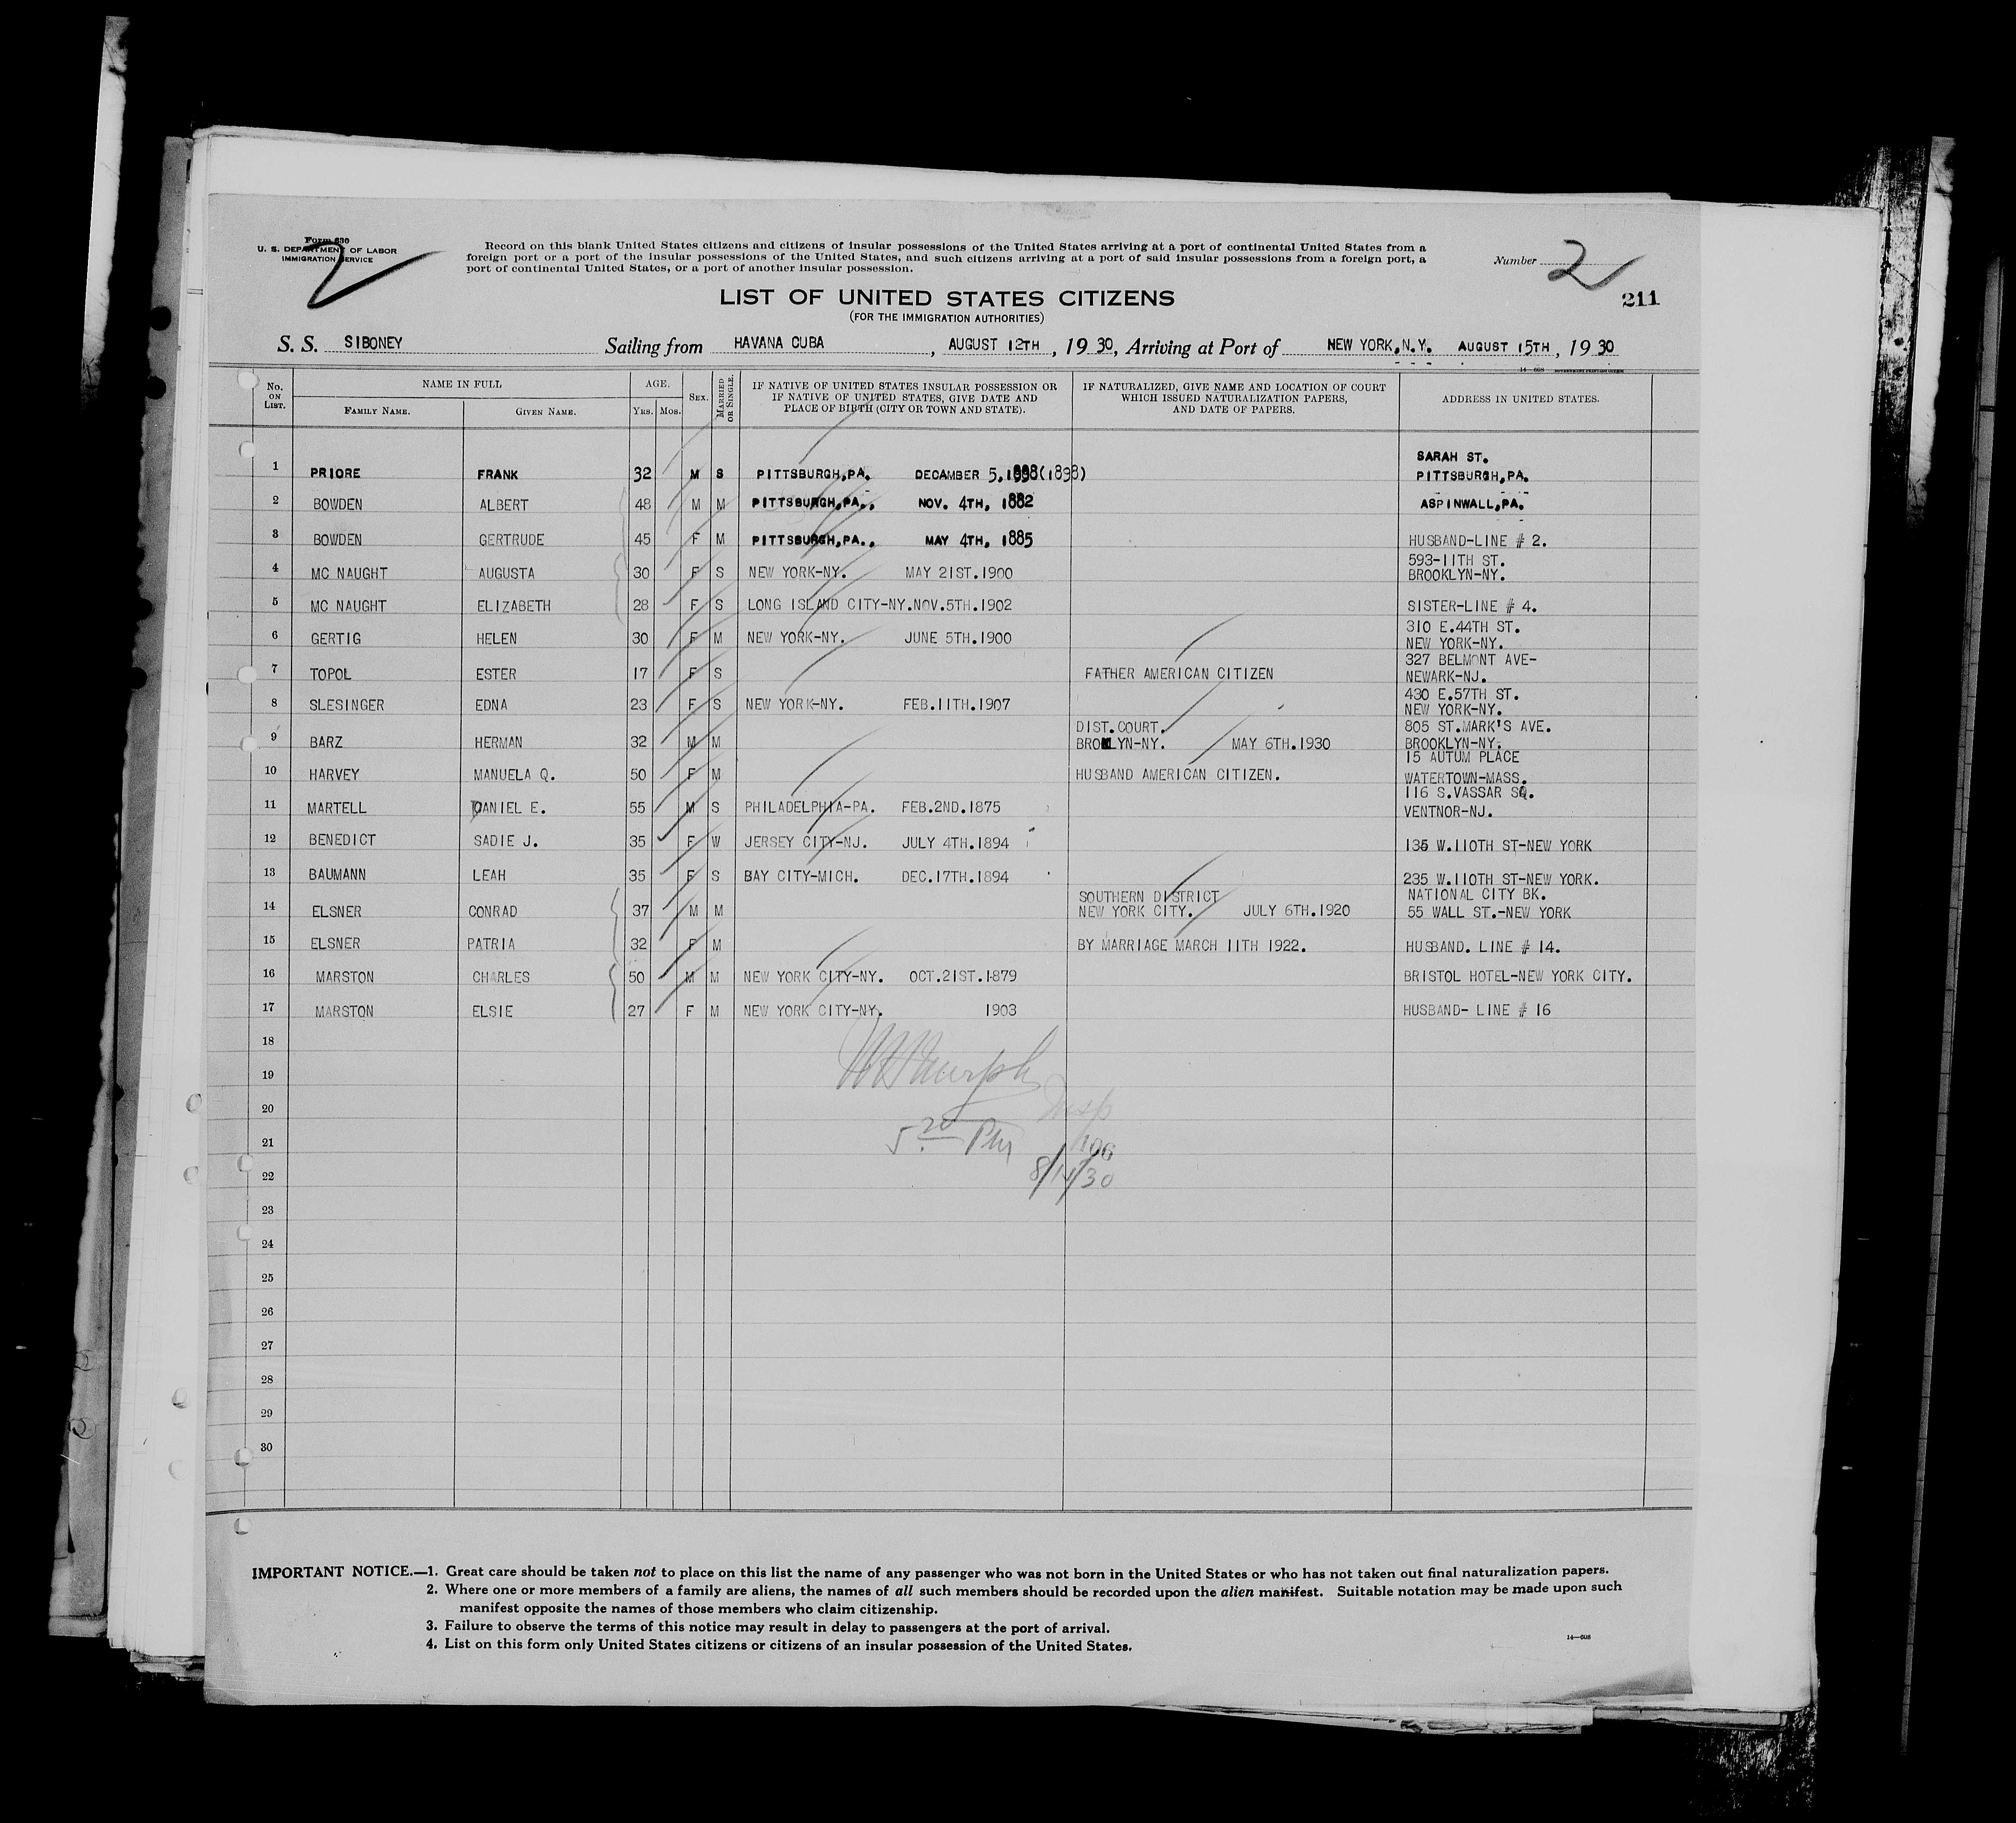 Form 630
U. S. DEPARTMENT OF LABOR
IMMIGRATION SERVICE
2
Record on this blank United States citizens and citizens of insular possessions of the United States arriving at a port of continental United States from a
foreign port or a port of the insular possessions of the United States, and such citizens arriving at a port of said insular possessions from a foreign port, a
port of continental United States, or a port of another insular possession.
Number 2
211
LIST OF UNITED STATES CITIZENS
(FOR THE IMMIGRATION AUTHORITIES)
S. S. SIBONEY Sailing from HAVANA CUBA , AUGUST 12TH , 19 30, Arriving at Port of NEW YORK,N.Y. AUGUST 15TH , 19 30
14—608
No. ON LIST. NAME IN FULL FAMILY NAME. GIVEN NAME. AGE. YRS. MOS. SEX. MARRIED OR SINGLE. IF NATIVE OF UNITED STATES INSULAR POSSESSION OR IF NATIVE OF UNITED STATES, GIVE DATE AND PLACE OF BIRTH (CITY OR TOWN AND STATE). IF NATURALIZED, GIVE NAME AND LOCATION OF COURT WHICH ISSUED NATURALIZATION PAPERS, AND DATE OF PAPERS. ADDRESS IN UNITED STATES.
SARAH ST.
1 PRIORE FRANK 32 M S PITTSBURGH,PA. DECAMBER 5,1898(1898) PITTSBURGH,PA.
2 BOWDEN ALBERT 48 M M PITTSBURGH,PA., NOV. 4TH, 1882 ASPINWALL,PA.
3 BOWDEN GERTRUDE 45 F M PITTSBURGH,PA., MAY 4TH, 1885 HUSBAND-LINE # 2.
593-11TH ST.
4 MC NAUGHT AUGUSTA 30 F S NEW YORK-NY. MAY 21ST.1900 BROOKLYN-NY.
5 MC NAUGHT ELIZABETH 28 F S LONG ISLAND CITY-NY.NOV.5TH.1902 SISTER-LINE # 4.
310 E.44TH ST.
6 GERTIG HELEN 30 F M NEW YORK-NY. JUNE 5TH.1900 NEW YORK-NY.
327 BELMONT AVE-
7 TOPOL ESTER 17 F S FATHER AMERICAN CITIZEN NEWARK-NJ.
430 E.57TH ST.
8 SLESINGER EDNA 23 F S NEW YORK-NY. FEB.11TH.1907 NEW YORK-NY.
DIST.COURT. 805 ST.MARK'S AVE.
9 BARZ HERMAN 32 M M BROKLYN-NY. MAY 6TH.1930 BROOKLYN-NY.
15 AUTUM PLACE
10 HARVEY MANUELA Q. 50 F M HUSBAND AMERICAN CITIZEN. WATERTOWN-MASS.
116 S.VASSAR SQ.
11 MARTELL DANIEL E. 55 M S PHILADELPHIA-PA. FEB.2ND.1875 VENTNOR-NJ.
12 BENEDICT SADIE J. 35 F W JERSEY CITY-NJ. JULY 4TH.1894 135 W.110TH ST-NEW YORK
13 BAUMANN LEAH 35 F S BAY CITY-MICH. DEC.17TH.1894 235 W.110TH ST-NEW YORK.
SOUTHERN DISTRICT NATIONAL CITY BK.
14 ELSNER CONRAD 37 M M NEW YORK CITY. JULY 6TH.1920 55 WALL ST.-NEW YORK
15 ELSNER PATRIA 32 F M BY MARRIAGE MARCH 11TH 1922. HUSBAND. LINE # 14.
16 MARSTON CHARLES 50 M M NEW YORK CITY-NY. OCT.21ST.1879 BRISTOL HOTEL-NEW YORK CITY.
17 MARSTON ELSIE 27 F M NEW YORK CITY-NY. 1903 HUSBAND- LINE # 16
18
19
20 Insp
21 5 20 PM
22 8/14/30
23
24
25
26
27
28
29
30
IMPORTANT NOTICE.—1. Great care should be taken not to place on this list the name of any passenger who was not born in the United States or who has not taken out final naturalization papers.
2. Where one or more members of a family are aliens, the names of all such members should be recorded upon the alien manifest. Suitable notation may be made upon such
manifest opposite the names of those members who claim citizenship.
3. Failure to observe the terms of this notice may result in delay to passengers at the port of arrival.
4. List on this form only United States citizens or citizens of an insular possession of the United States.
14—608